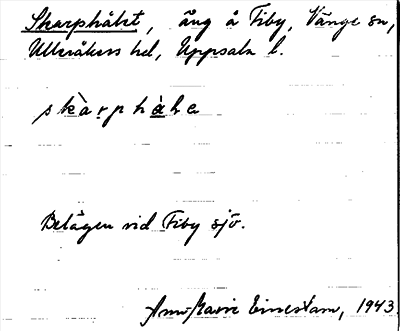 Skarphålet, äng å Fiby, Vänge sn,
Ulleråkers hd, Uppsala l.
skàrphàle
Belägen vid Fiby sjö.
Ann-Marie Einestam, 1943